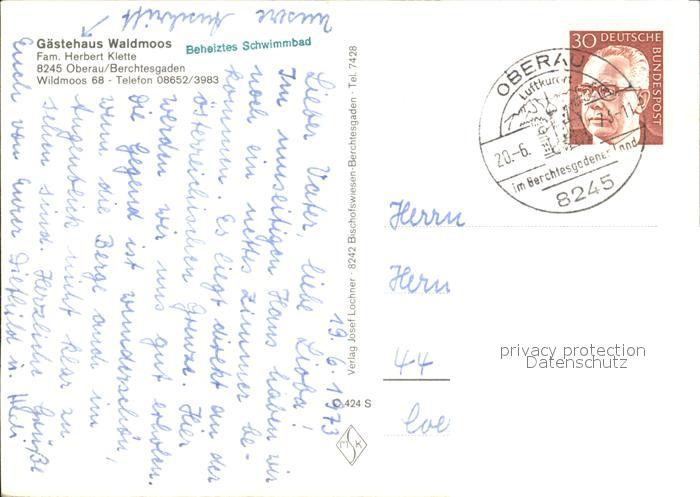 unsere Anschrift
Gästehaus Waldmoos
Fam. Herbert Klette
8245 Oberau/Berchtesgaden
Wildmoos 68 - Telefon 08652/3983
Beheiztes Schwimmbad
19.6.1973
Lieber Vater, liebe Lioba!
Im umseitigen Haus haben wir
noch ein nettes Zimmer be-
kommen. Es liegt direkt an der
österreichischen Grenze. Hier
werden wir uns gut erholen.
Die Gegend ist wunderschön,
wenn die Berge auch im
Augenblick nicht klar zu
sehen sind. Herzliche Grüße
Euch von Eurer Diethild u.
Verlag Josef Lochner · 8242 Bischofswiesen-Berchtesgaden · Tel. 7428
C 424 S
30 DEUTSCHE
BUNDESPOST
OBERAU
Luftkurort
20.-6.
im Berchtesgadener Land
8245
Herrn
44
privacy protection
Datenschutz